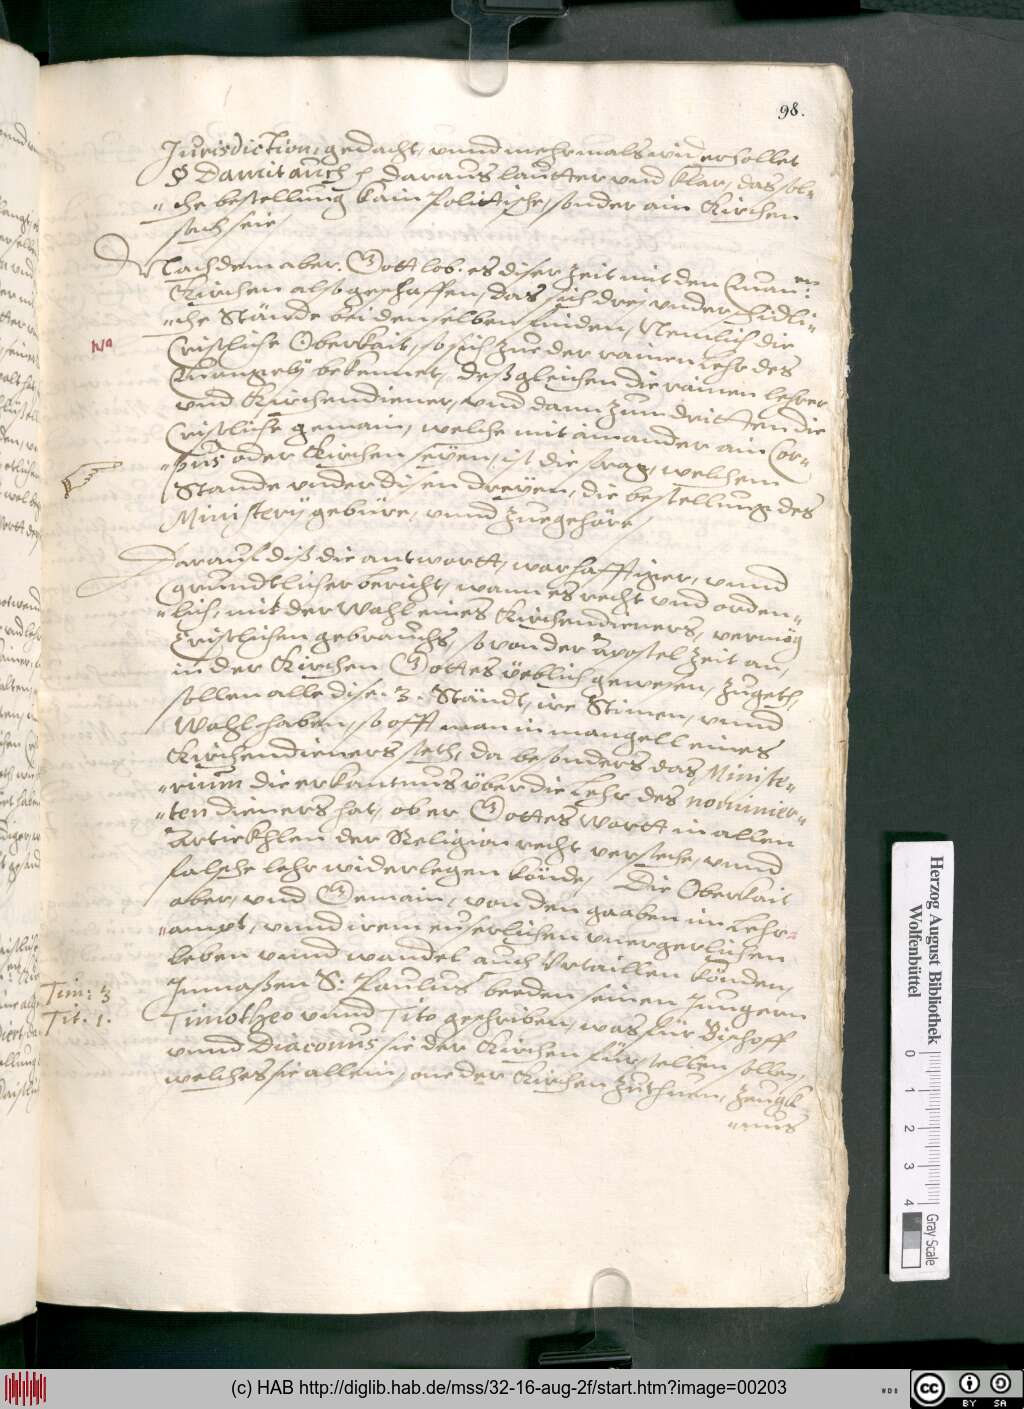 98.
Jurisdiction, gedacht, unnd mehrmals widerhollet
§ Damit auch ꝛc. daraus lautter und klar, das sol-
che bestellung kain Politische, sonder ain Kirchen
sach seie,
Nachdem aber. Gott lob. es diser zeit mit den Euan:en
Kirchen also geschaffen, das sich drey underschidli-
che Stände bei denselben finden, Nemlich die
Na
Cristliche Oberkait, so sich zue der rainen Lehr des
Euangelÿ bekennet, deßgleichen die rainen lehrer
und Kirchendiener, und dann zum dritten die
Cristliche gemain, welche mit ainander ain Cor-
pus oder Kirchen seÿen, ist die frag, welchem
Stande under disen dreÿen, die bestellung des
Ministerÿ gebüre, unnd zuegehöre,
Darauf diß die antwortt, warhafftiger, unnd
gründtlicher bericht, wann es recht und orden-
lich, mit der Wahl eines Kirchendieners, vermög
Cristlichen gebrauchs, so von der Apostel zeit an,
in der Kirchen Gottes üeblich gewesen, zugeth,
sollen alle dise .3. Ständt, ire Stimen, unnd
Wahl haben, so offt man in mangell eines
Kirchendieners steth, da besonders das Ministe-
rium die erkantnus über die Lehr des nominier-
ten dieners hat, ob er Gottes Wortt in allen
Artickhlen der Religion recht verstehe, unnd
falsche lehr widerlegen könde, Die Oberkait
aber, und Gemain, von den gaaben im Lehr-
ampt, unnd irem euserlichen unergerlichen
leben unnd wandel auch Urtaillen könden,
Tim: 3
Inmaßen S: Paulus beeden seinen Jungern
Tit. 1.
Timotheo unnd Tito geschriben, was für Bischoff
unnd Diaconus sie der Kirchen fürstellen sollen,
welches sie allein, one der Kirchen zuthuen, zeugk-
nus
Herzog August Bibliothek
Wolfenbüttel
0 1 2 3 4
Gray Scale
(c) HAB http://diglib.hab.de/mss/32-16-aug-2f/start.htm?image=00203
WDB
cc BY SA